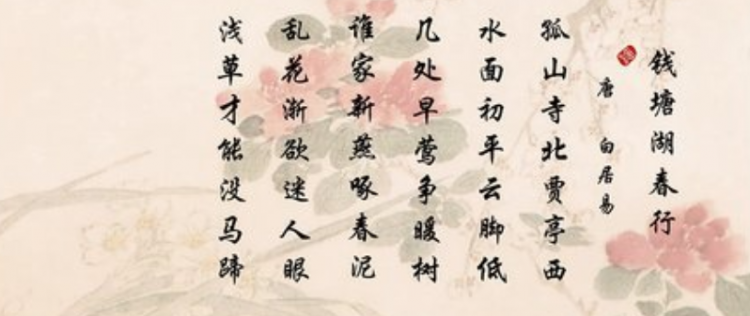 钱塘湖春行
唐 白居易
孤山寺北贾亭西
水面初平云脚低
几处早莺争暖树
谁家新燕啄春泥
乱花渐欲迷人眼
浅草才能没马蹄